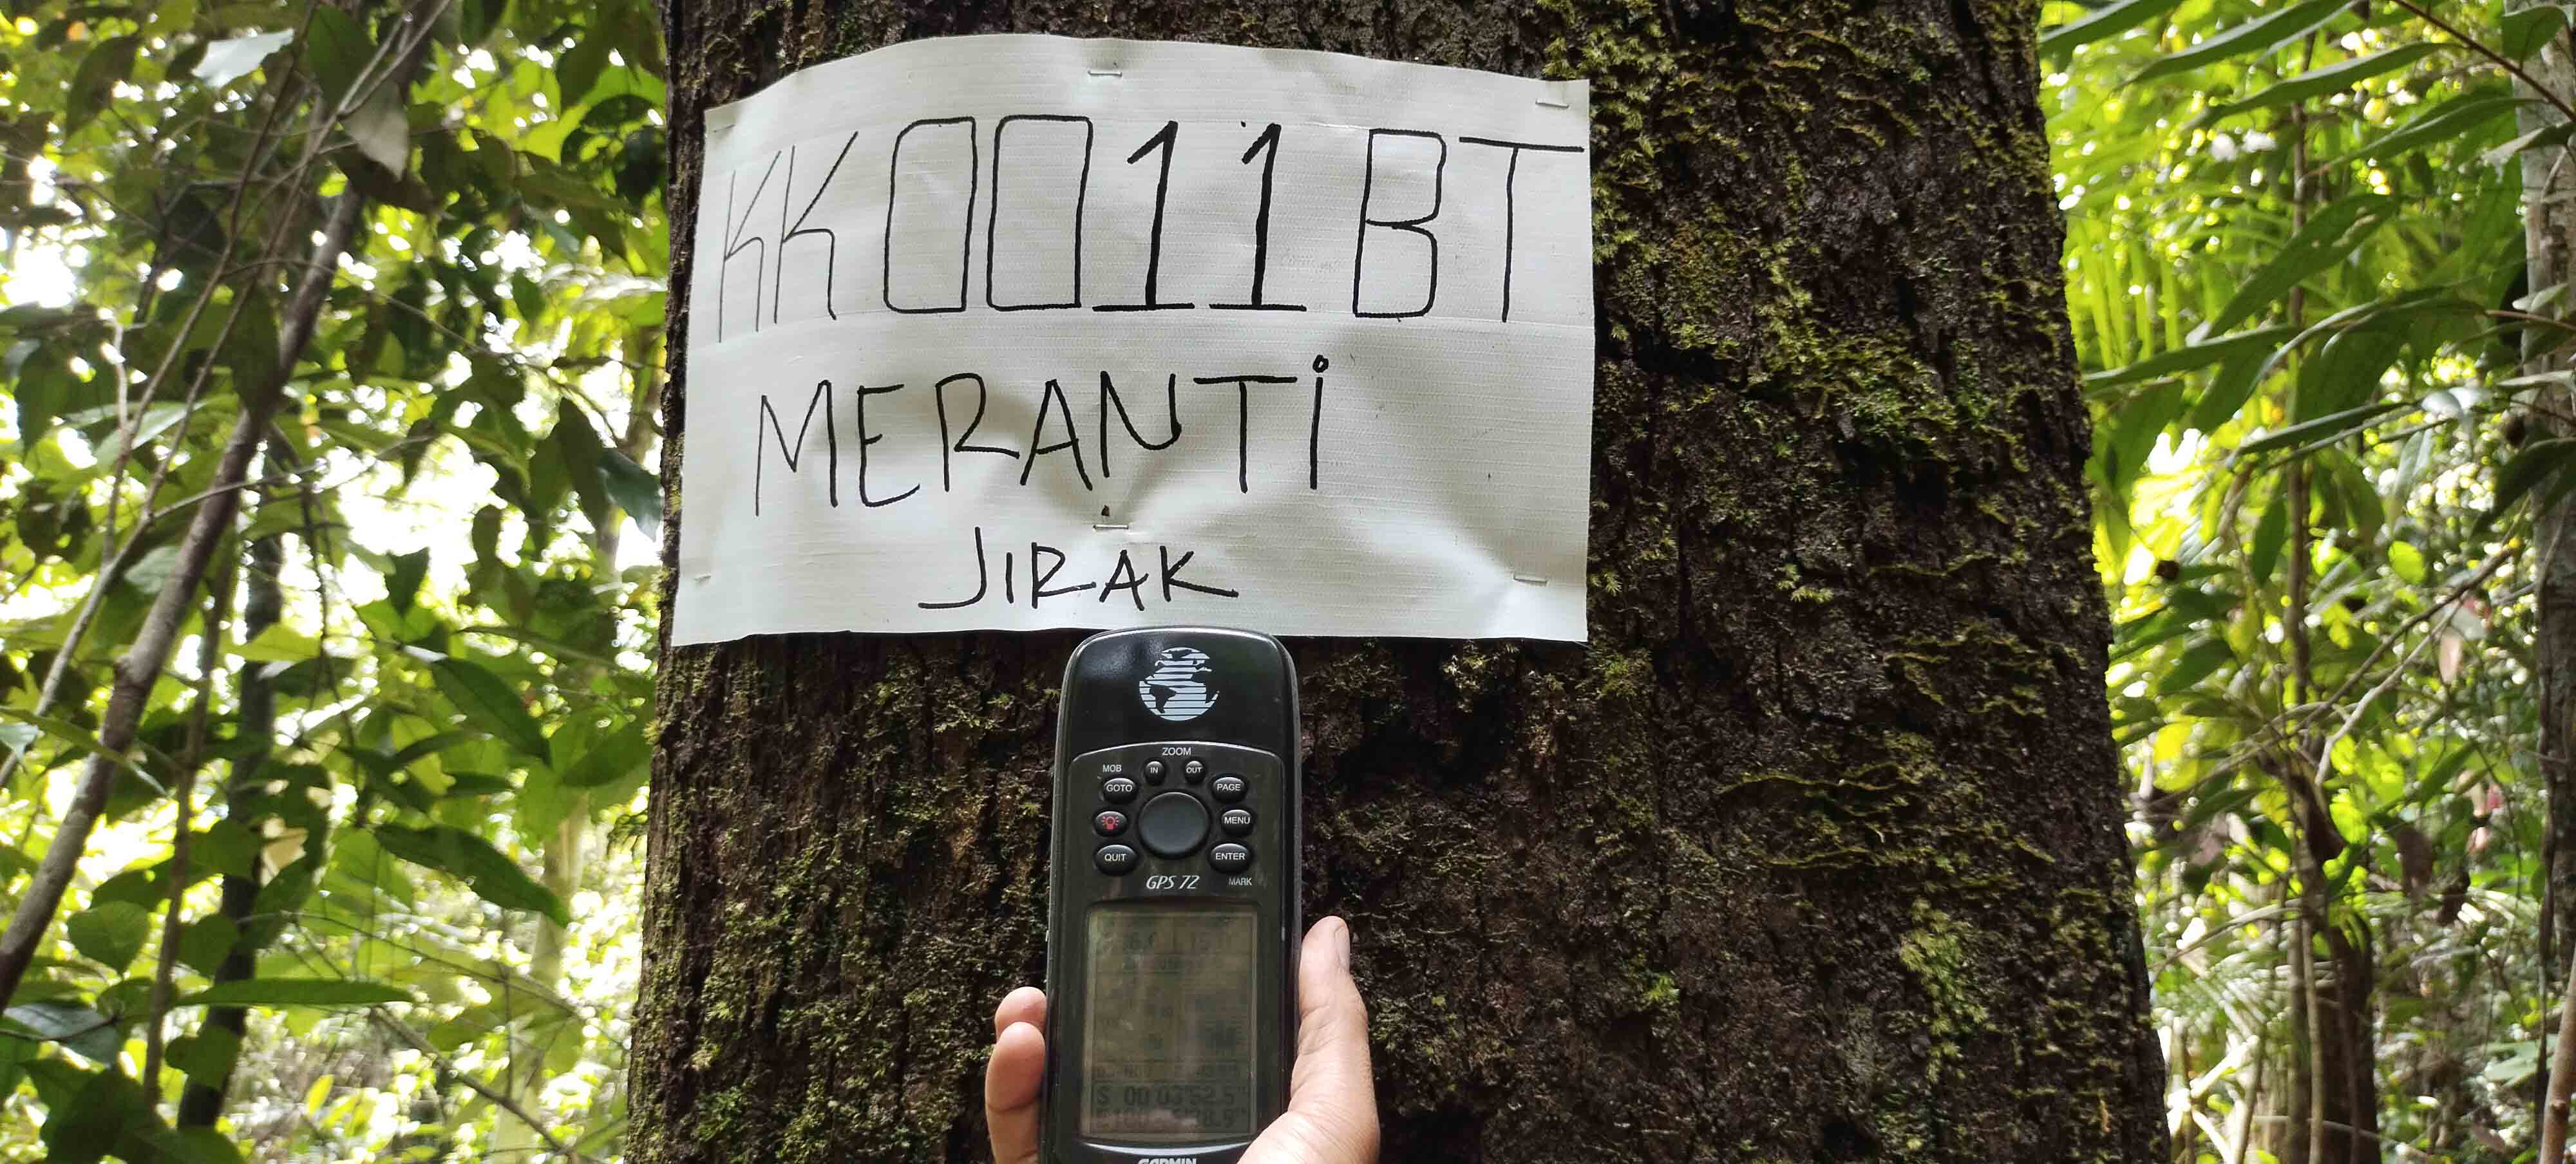 KK0011BT
MERANTi
JIRAK
ZOOM
MOB IN OUT
GOTO PAGE
MENU
QUIT ENTER
GPS 72 MARK
S 00°03'52.5"
GARMIN